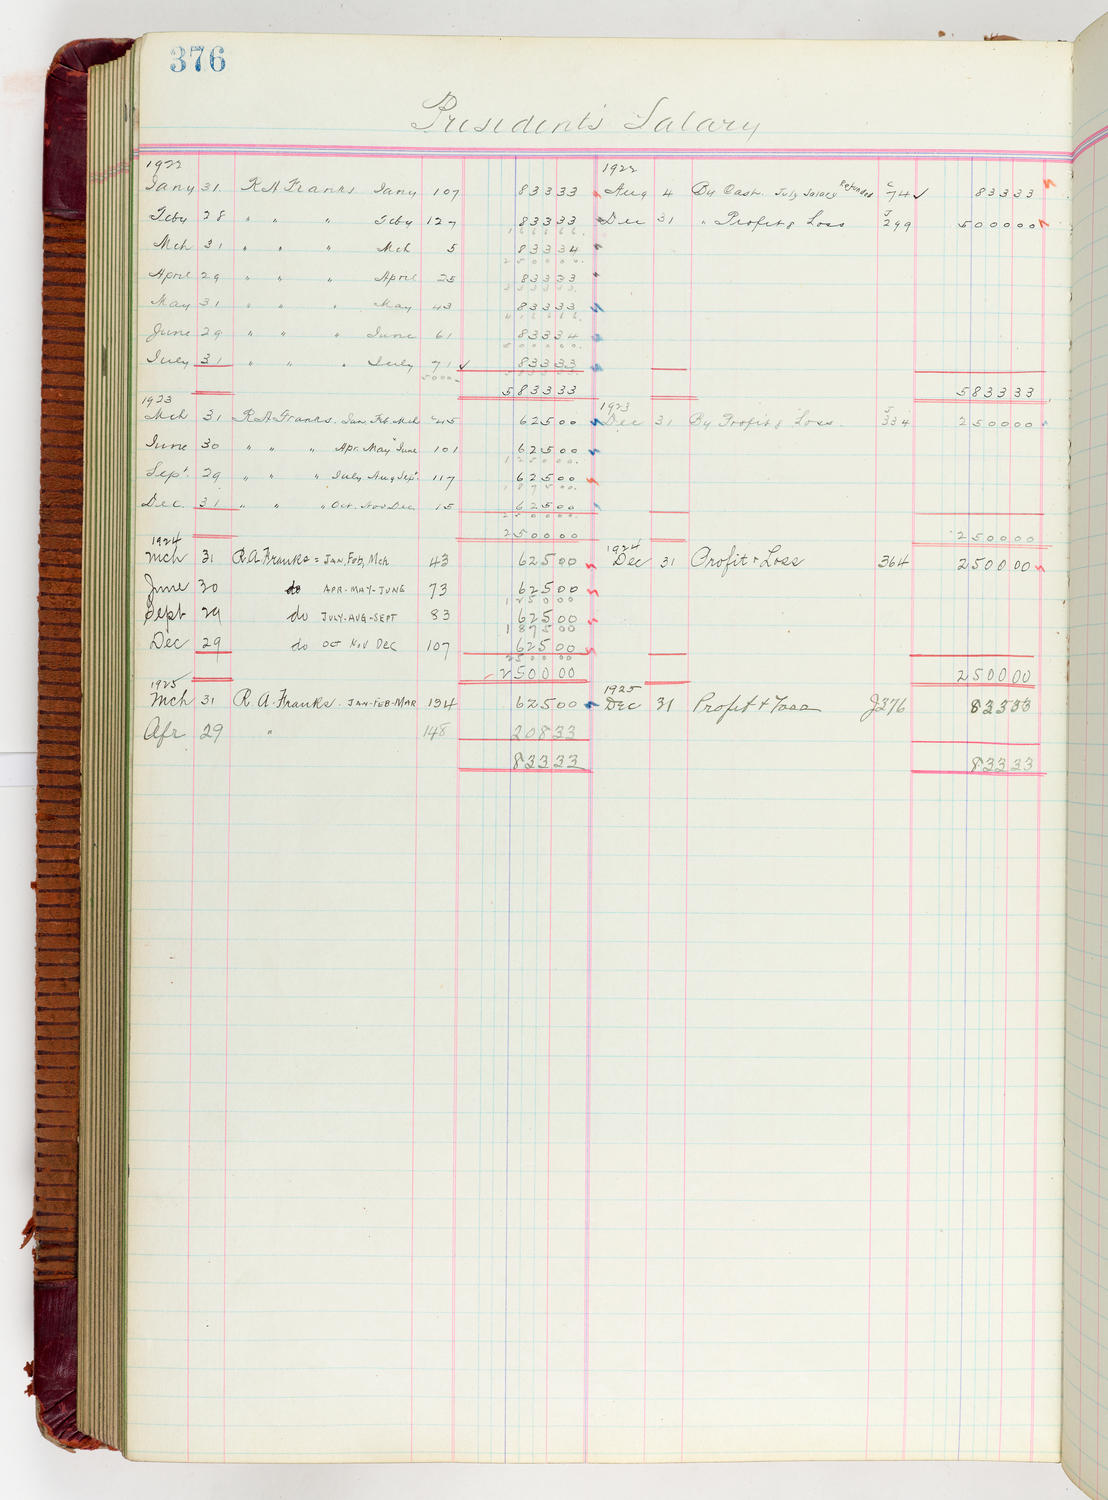 376
President's Salary
1922 1922
Jany 31 R A Franks Jany 107 83333 Aug 4 By Cash July Salary Refunded C 74 ✓ 83333
Feby 28 " " " Feby 127 83333 Dec 31 " Profit & Loss J 299 500000
166666
Mch 31 " " " Mch 5 83334
250000
April 29 " " " April 25 83333
333333
May 31 " " " May 43 83333
416666
June 29 " " " June 61 83334
500000
July 31 " " " July 71 ✓ 83333
5000- 583333
583333 583333
1923 1923
Mch 31 R A Franks Jan Feb Mch 45 62500 Dec 31 By Profit & Loss J 334 250000
June 30 " " " Apr. May June 101 62500
125000
Sept 29 " " " July Aug Sept 117 62500
187500
Dec. 31 " " " Oct. Nov Dec 15 62500
250000
250000 250000
1924 1924
Mch 31 R A Franks = Jan, Feb, Mch 43 62500 Dec 31 Profit & Loss 364 250000
June 30 do APR-MAY-JUNE 73 62500
125000
Sept 29 do JULY-AUG-SEPT 83 62500
187500
Dec 29 do OCT NOV DEC 107 62500
250000
250000 250000
1925 1925
Mch 31 R A Franks - JAN-FEB-MAR 134 62500 Dec 31 Profit & Loss J376 83333
Apr 29 " 148 20833
83333 83333